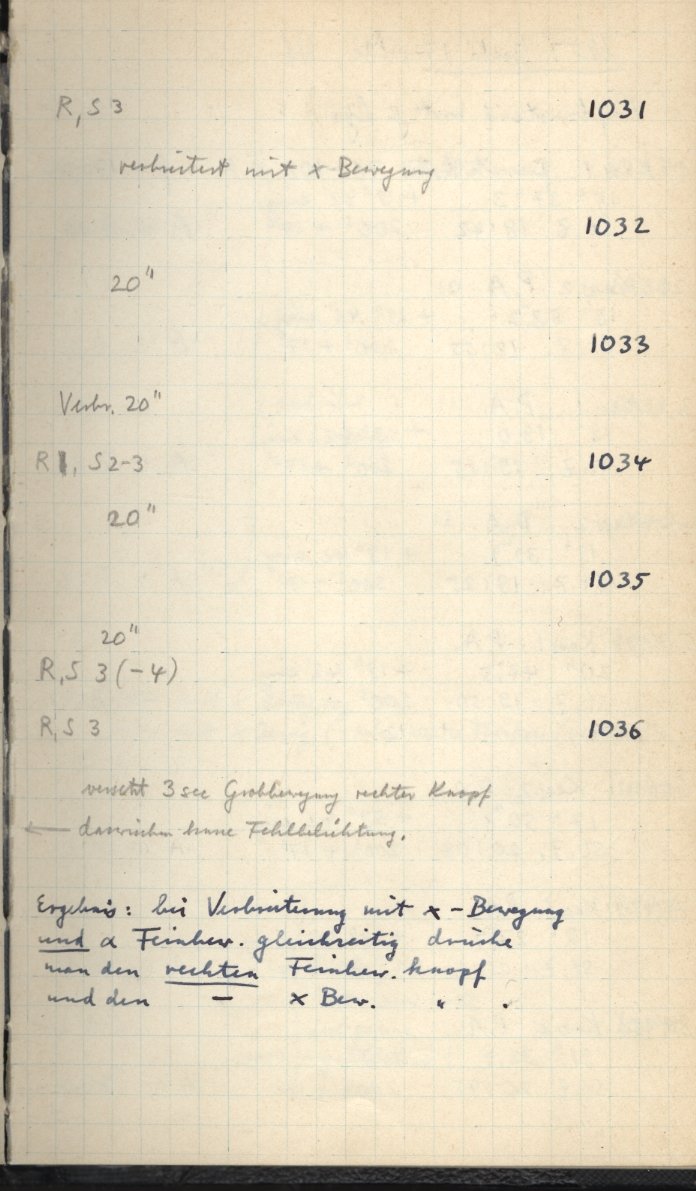 R, S 3 1031
verbreitert mit x Bewegung
1032
20"
1033
Verbr. 20"
R 1, S 2-3 1034
20"
1035
20"
R, S 3 (-4)
R, S 3 1036
versetzt 3 sec Grobbewegung rechter Knopf
← dazwischen kurze Fehlbelichtung.
Ergebnis: bei Verbreiterung mit x - Bewegung
und α Feinbew. gleichzeitig drücke
man den rechten Feinbew. knopf
und den — x Bew. " .